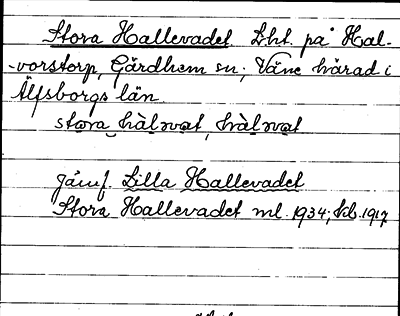 Stora Hallevadet Lht. på Hal-
-vorstorp, Gärdhem sn; Väne härad i
Älfsborgs län.
stora hàlvat, hàlvat
Jämf. Lilla Hallevadet
Stora Hallevadet ml. 1934; hb. 1917